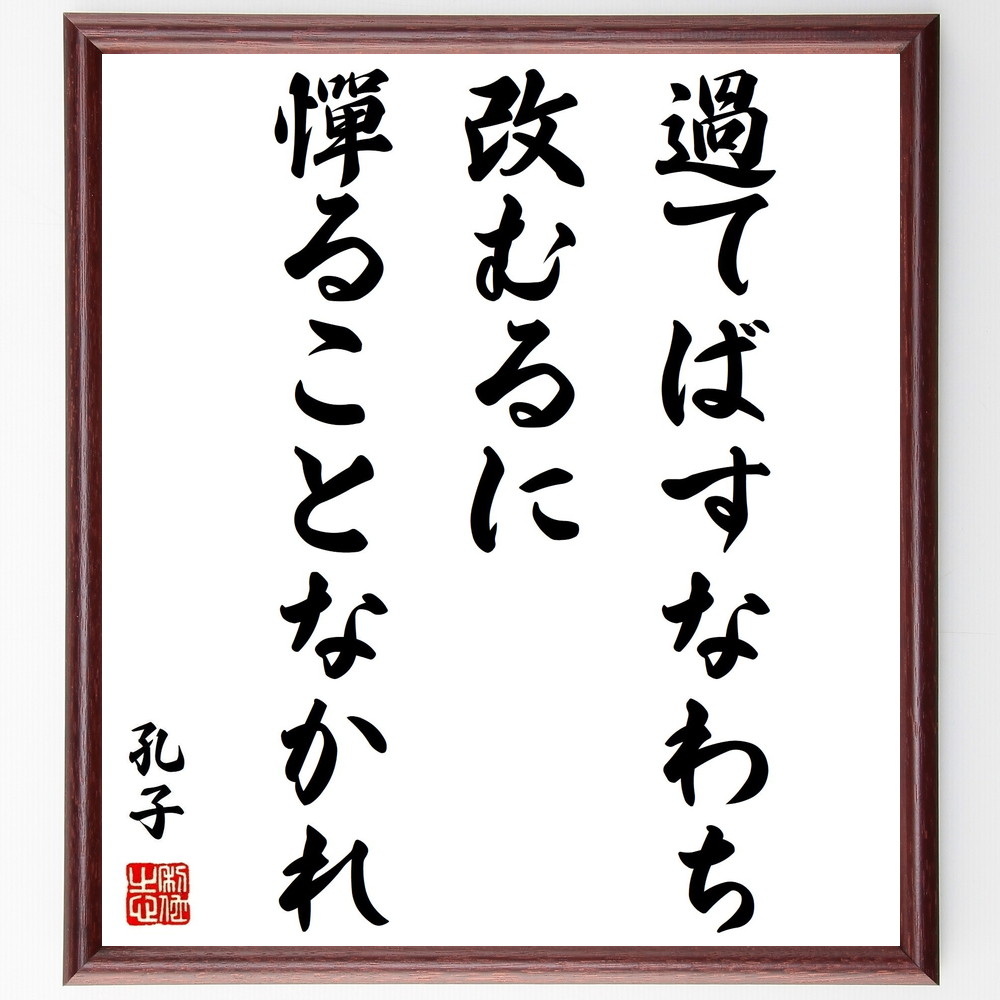 過てばすなわち
改むるに
憚ることなかれ
孔子